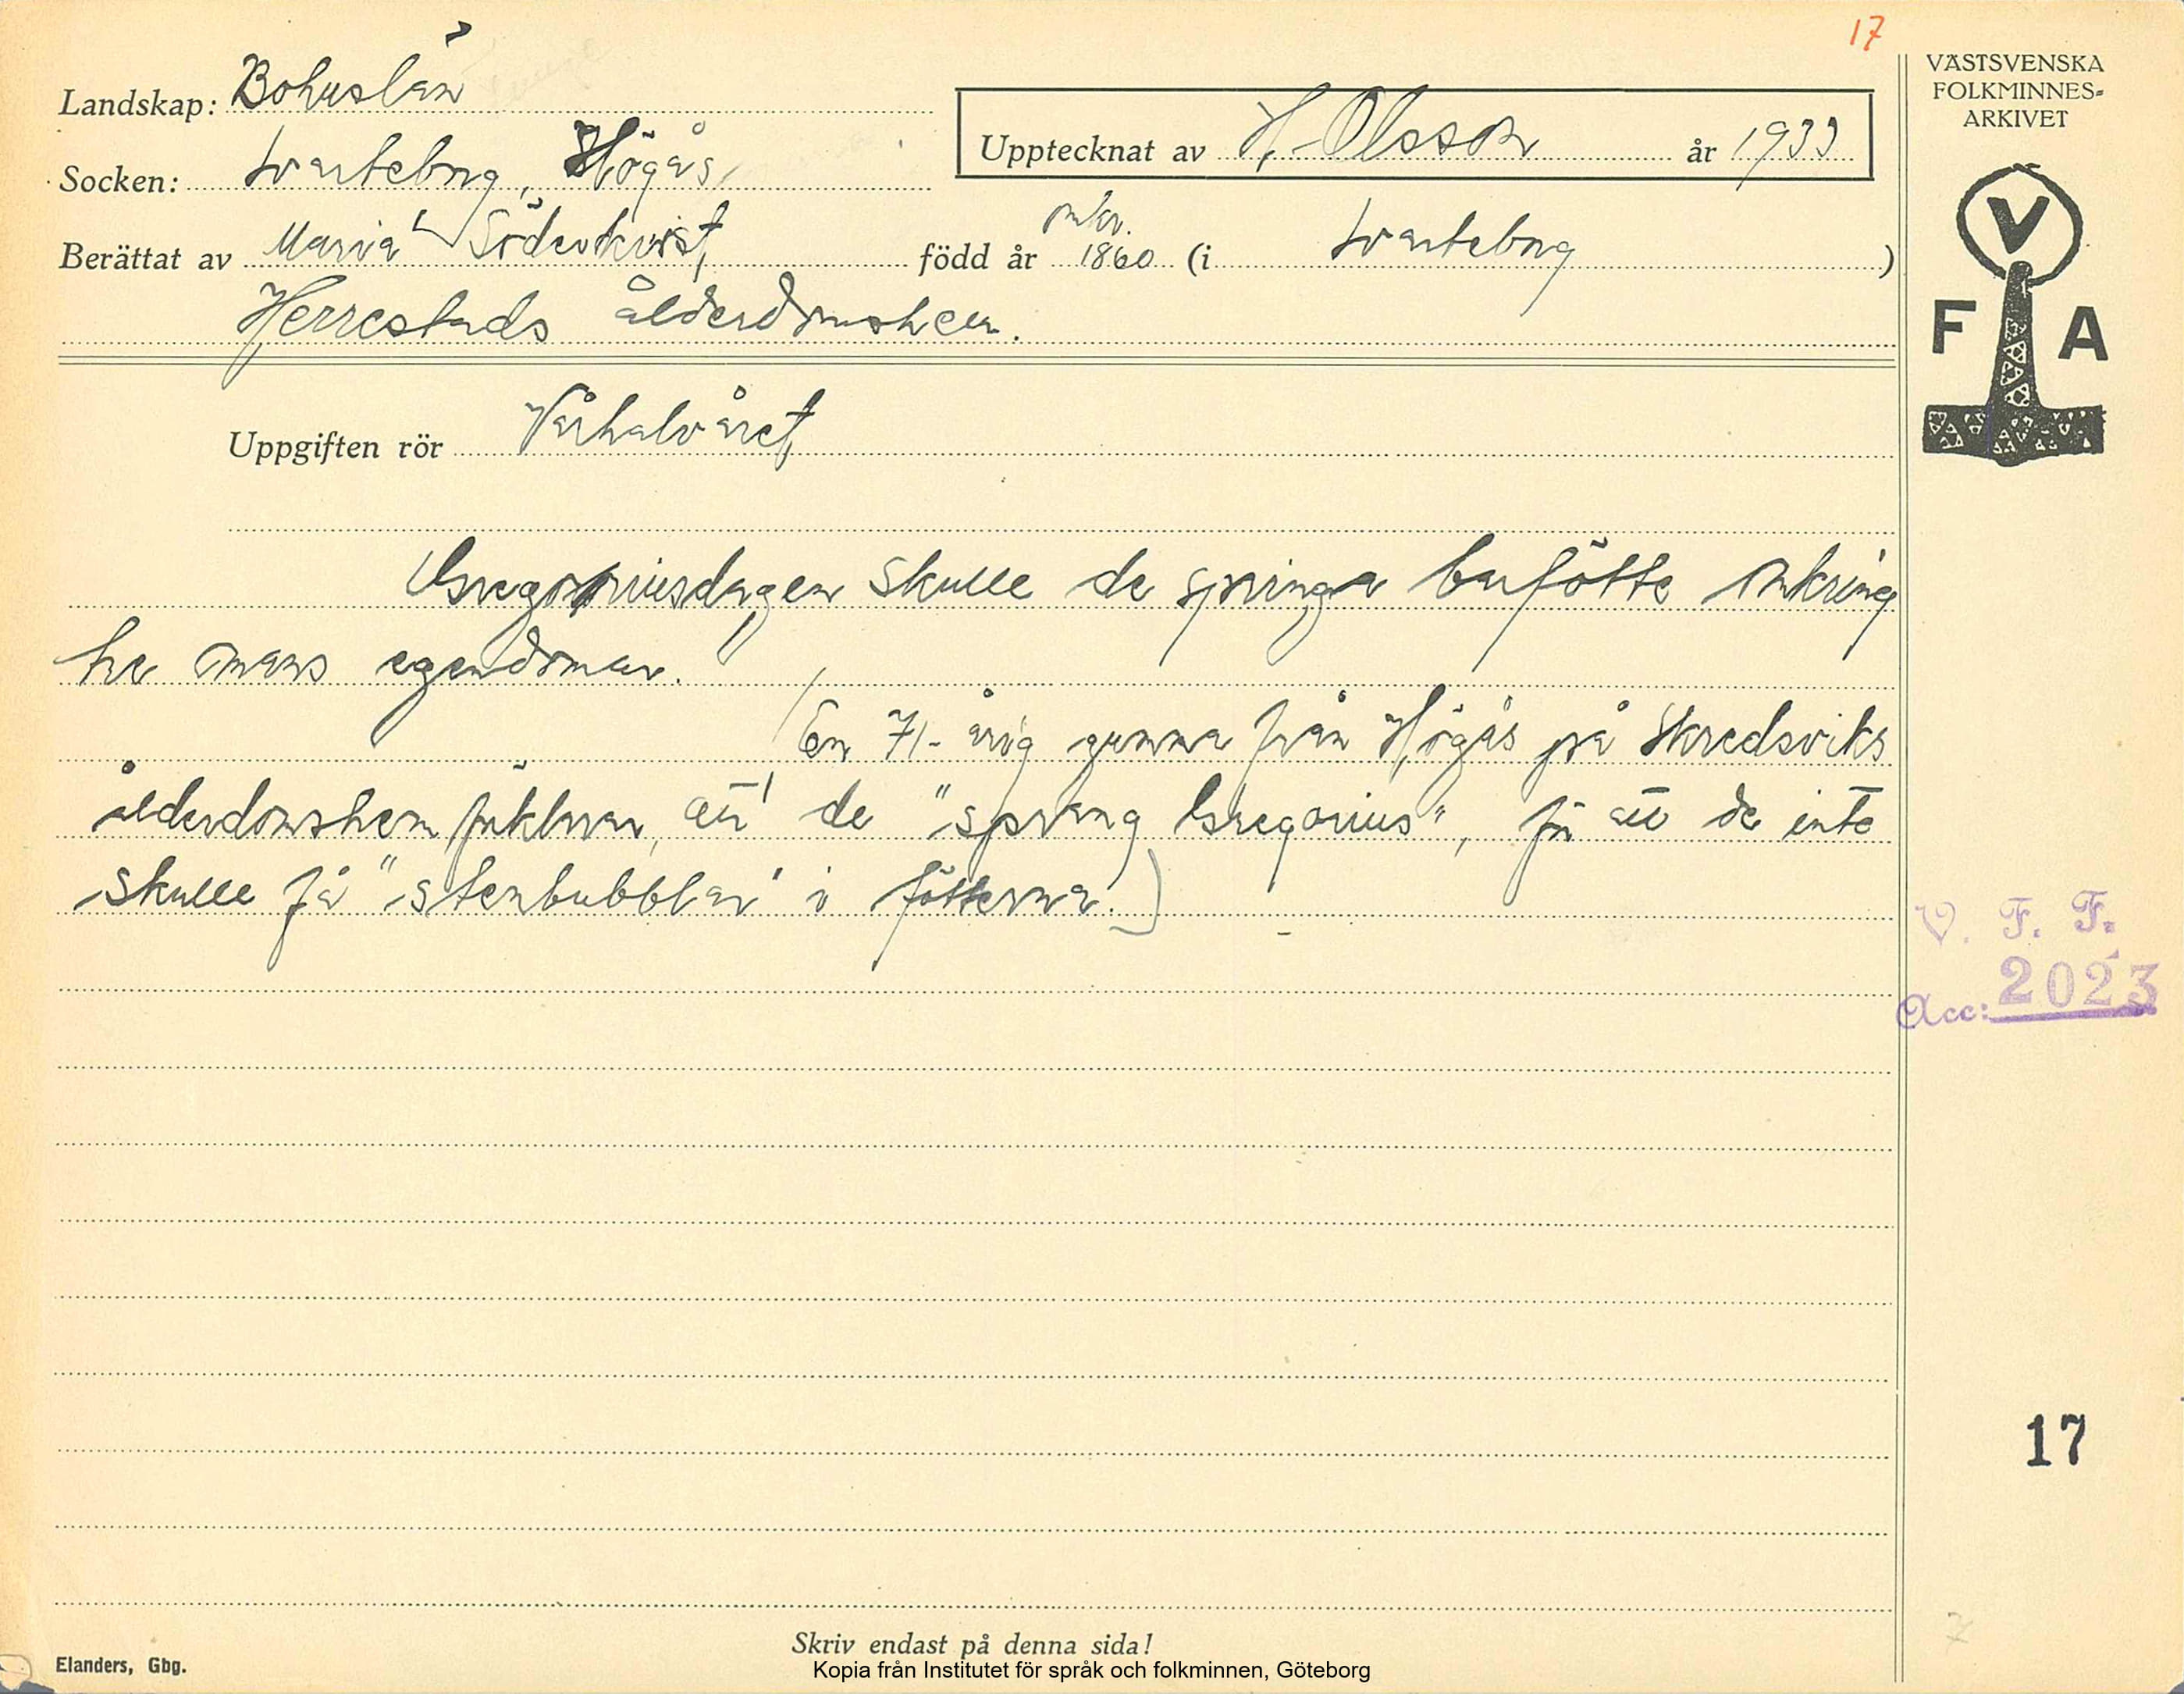 17
VÄSTSVENSKA
FOLKMINNES=
ARKIVET
Landskap: Bohuslän
Socken: Svarteborg, Högås
Upptecknat av H. Olsson år 1933
Berättat av Maria Söderkvist, född år omkr. 1860 (i Svarteborg)
Herrestads ålderdomshem.
V
F A
Uppgiften rör Vårhalvåret
Gregoriusdagen skulle de springa barfötte omkring
tre mans egendomar.
(En 71-årig gumma från Högås på Skredsviks
ålderdomshem förklarar, att de "sprang Gregorius", för att de inte
skulle få "stenbubblar" i fötterna.)
V. F. F.
Acc: 2023
17
7
Skriv endast på denna sida!
Elanders, Gbg.
Kopia från Institutet för språk och folkminnen, Göteborg